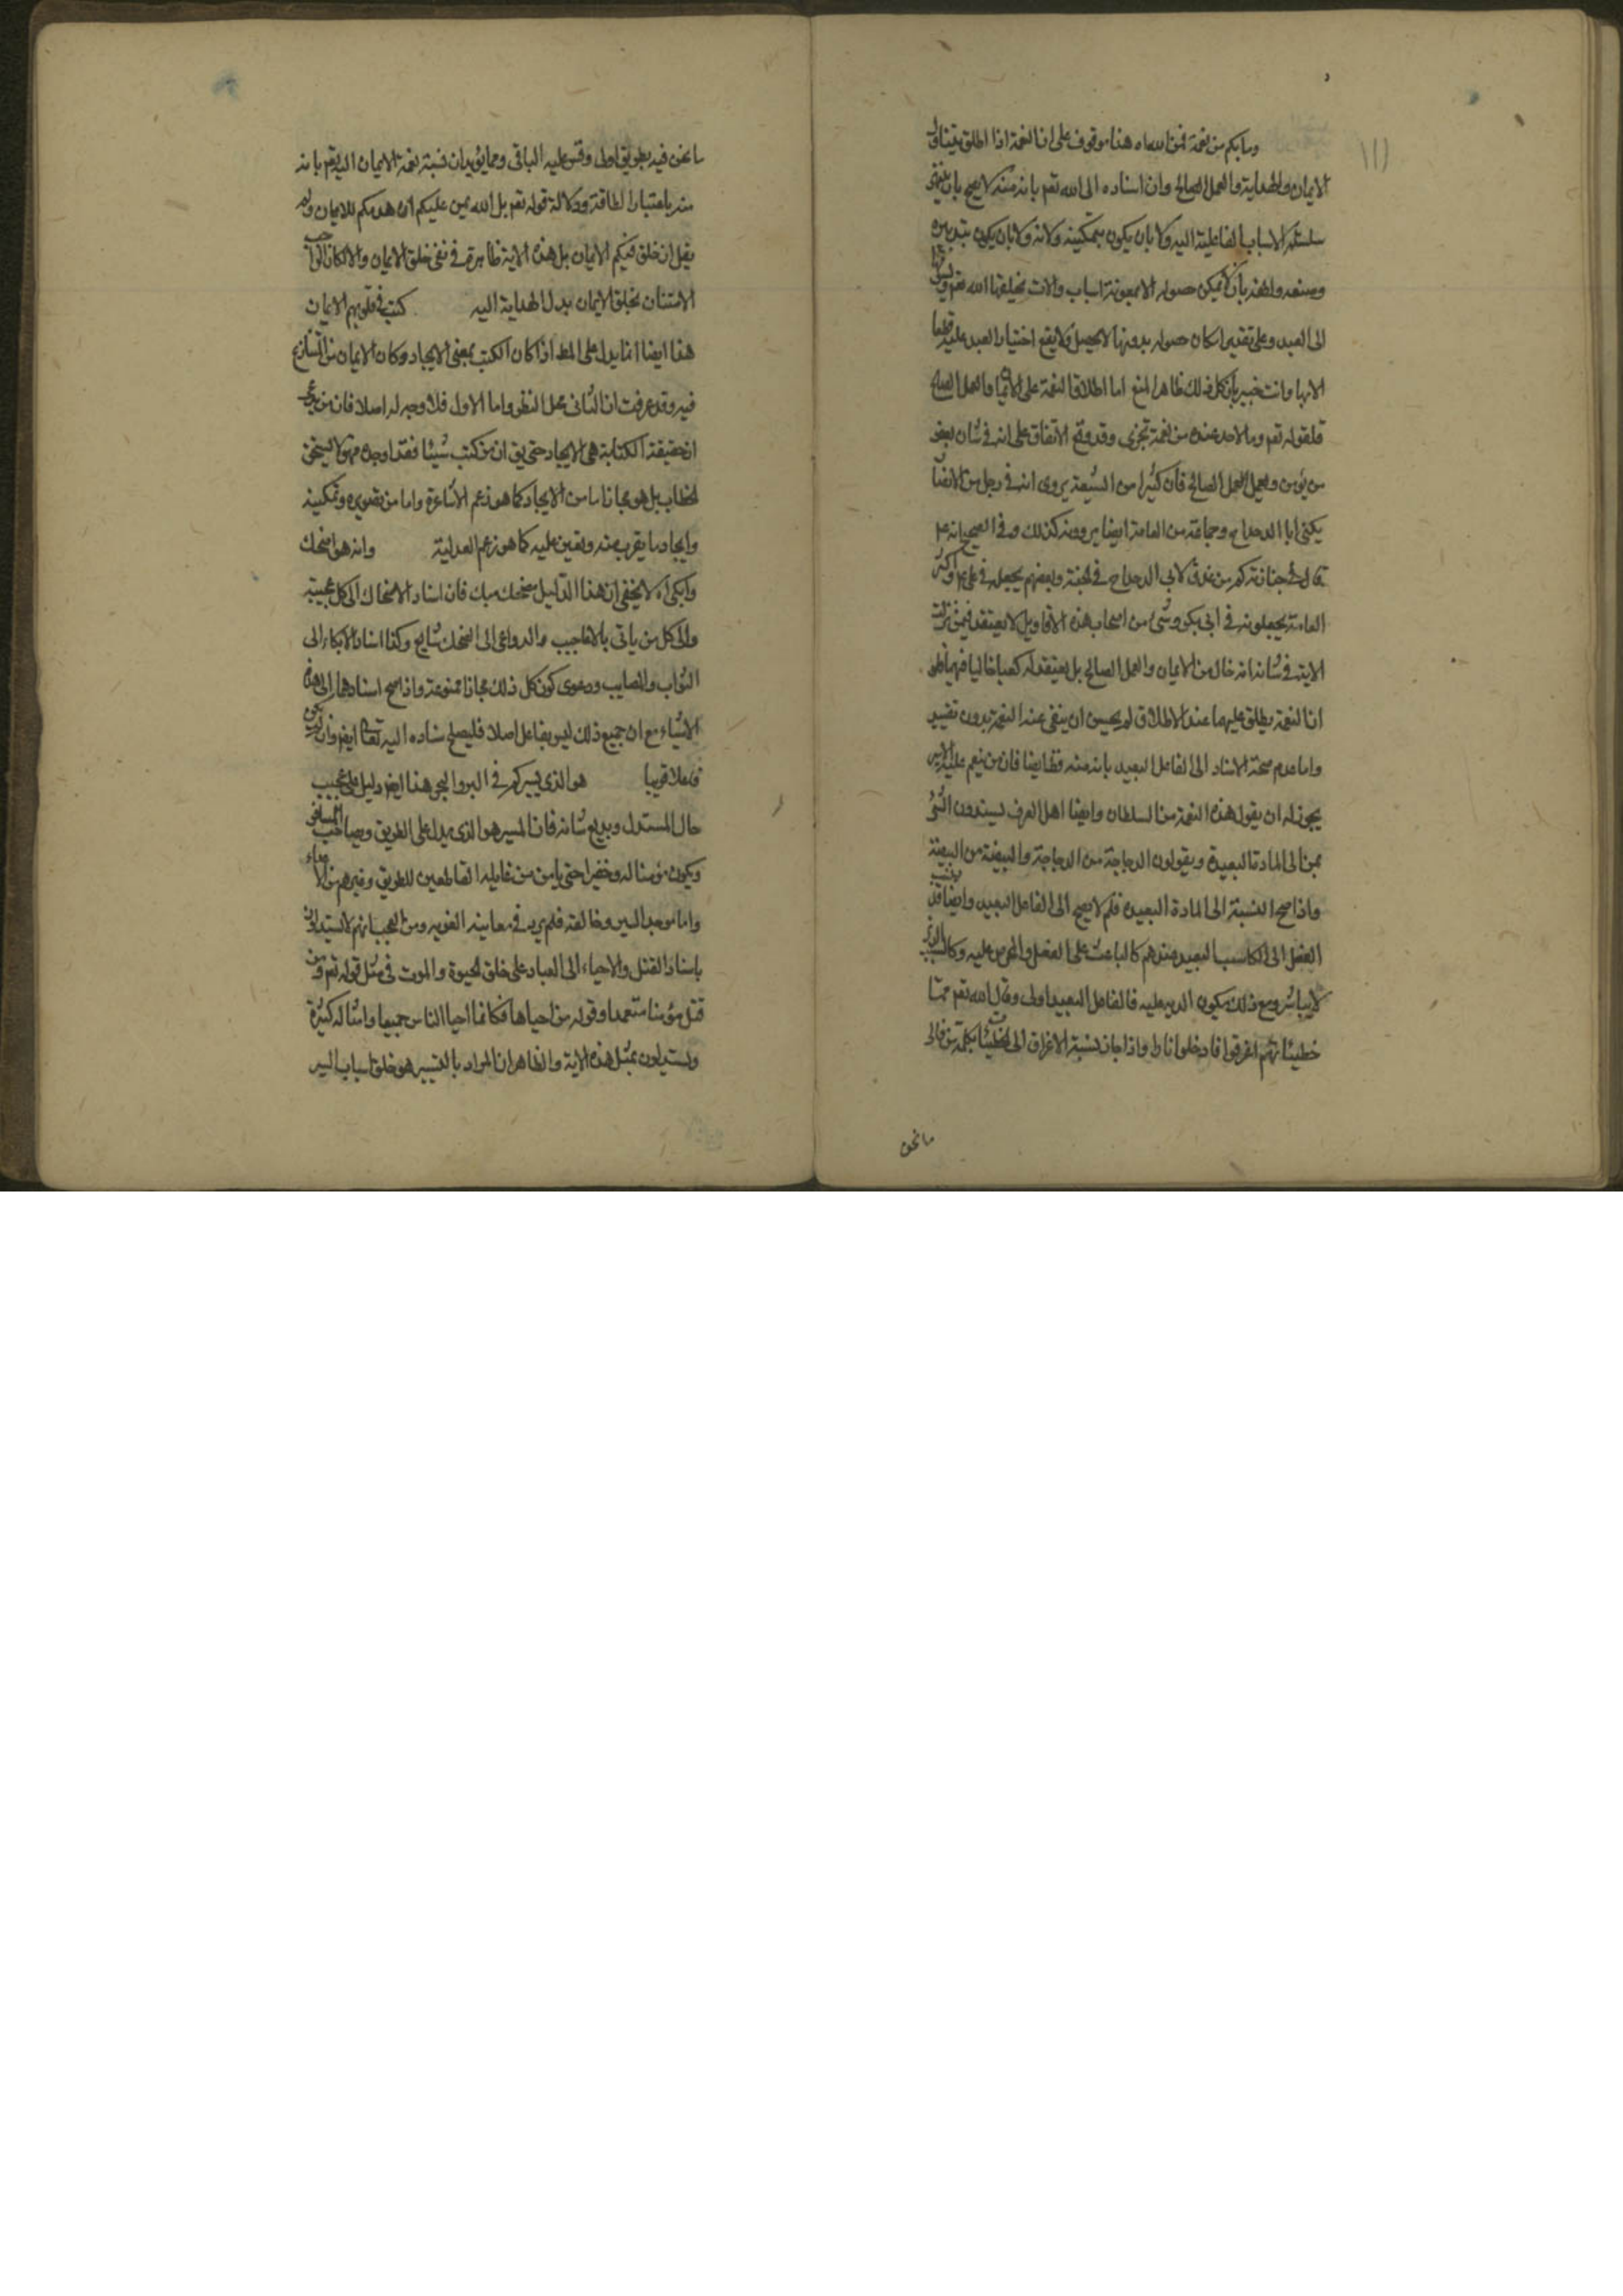 وما بكم من نعمة فمن الله اه هذا موقوف على ان النعمة اذا اطلق يتناول
الايمان والهداية والعمل الصالح وان اسناده الى الله تعم بانه منه لا يصح بان ينتهى
سلسلة الاسباب الفاعلية اليه ولا بان يكون بتمكينه ولانه ولا بان يكون بتدبيره
وصنعه ولطفه بان لا يمكن حصوله الا بمعونة اسباب والات يخلقها الله تعم
الى العبد وعلى تقدير امكان حصوله بدونها لا يحصل ولا يقع اختيار العبد عليه قطعا
الا بها وانت خبير بان كل ذلك ظاهر المنع اما اطلاق النعمة على الايمان والعمل الصالح
فلقوله تعم وما لاحد عنده من نعمة تجزى وقد وقع الاتفاق على انه فى شان بعض
من يؤمن ويعمل العمل الصالح فان كثيرا من الشيعة يروى انه فى رجل من الانصار
يكنى ابا الدحداح وجماعة من العامة ايضا يروونه كذلك وفى الصحيح انه عم
قال فى جنازته كم من عذق لابى الدحداح فى الجنة وبعضهم يجعله فى على عم واكثر
العامة يجعلونه فى ابى بكر وشئ من اصحاب هذه الاقاويل لا يعتقد فيمن نزلت
الاية فى شانه انه خال من الايمان والعمل الصالح بل يعتقد له كعبا عاليا فيهما فلو
ان النعمة يطلق عليهما عند الاطلاق لم يحسن ان ينفى عنه النعمة بدون تقييد
واما عدم صحة الاسناد الى الفاعل البعيد بانه منه فظ ايضا فان من ينعم عليه الامير
يجوز له ان يقول هذه النعمة من السلطان وايضا اهل العرف يسندون الشئ
بمن الى المادة البعيدة ويقولون الدجاجة من الدجاجة والبيضة من البيضة
واذا صح النسبة الى المادة البعيدة فلم لا يصح الى الفاعل البعيد وايضا قد ينسب
الفعل الى الكاسب البعيد عندهم كالباعث على الفعل والمحرص عليه وكالسبب الذى
لا يباشر ومع ذلك يكون الديه عليه فالفاعل البعيد اولى وقال الله تعم مما
خطيئاتهم اغرقوا فادخلوا نارا واذا جاز نسبة الاغراق الى الخطيئة بكلمة من فالى
ما نحن
ما نحن فيه بطريق اولى وقس عليه الباقى ومما يؤيد ان نسبة نعمة الايمان اليه تعم بانه
منه باعتبار الطاقة ودلالة قوله تعم بل الله يمن عليكم ان هديكم للايمان ولم
يقل ان خلق فيكم الايمان بل هذه الاية ظاهرة فى نفى خلق الايمان والا لكان الواجب
الامتنان بخلق الايمان بدل الهداية اليه كتب فى قلوبهم الايمان
هذا ايضا انما يدل على المط اذا كان الكتب بمعنى الايجاد وكان الايمان من المتنازع
فيه وقد عرفت ان الثانى محل النظر واما الاول فلا وجه له اصلا فان من يدعى
ان حقيقة الكتابة هى الايجاد حتى يق ان من كتب شيئا فقد اوجده فهو لا يستحق
الخطاب بل هو مجاز اما من الايجاد كما هو زعم الاشاعرة واما من تقويه وتمكينه
وايجاد ما يقرب منه ويعين عليه كما هو زعم العدلية وانه هو اضحك
وابكى اه لا يخفى ان هذا الدليل مضحك مبك فان اسناد الاضحاك الى كل عجيبة
والى كل من ياتى بالاعاجيب والدواعى الى الضحك شايع وكذا اسناد الابكاء الى
النوائب والمصايب ودعوى كون كل ذلك مجازا ممنوعة واذا صح اسنادهما الى هذه
الاشياء مع ان جميع ذلك ليس بفاعل اصلا فليصلح اسناده اليه تعالى ايضا وان لم يكن
فاعلا قريبا هو الذى يسيركم فى البر والبحر هذا ايضا دليل على عجيب
حال المستدل وبديع شانه فان المسير هو الذى يدل على الطريق ويصاحب المسافر
ويكون مؤمنا له وخفيرا حتى يامن من غايلة القاطعين للطريق وغيرهم من الاعداء
واما موجد السير وخالقه فلم يرد فى معانيه اللغوية ومن العجب انهم لا يستدلون
باسناد القتل والاحياء الى العباد على خلق الحيوة والموت فى مثل قوله تعم ومن
قتل مؤمنا متعمدا وقوله من احياها فكانما احيا الناس جميعا وامثاله كثيرة
ويستدلون بمثل هذه الاية والظاهر ان المراد بالتسيير هو خلق اسباب السير